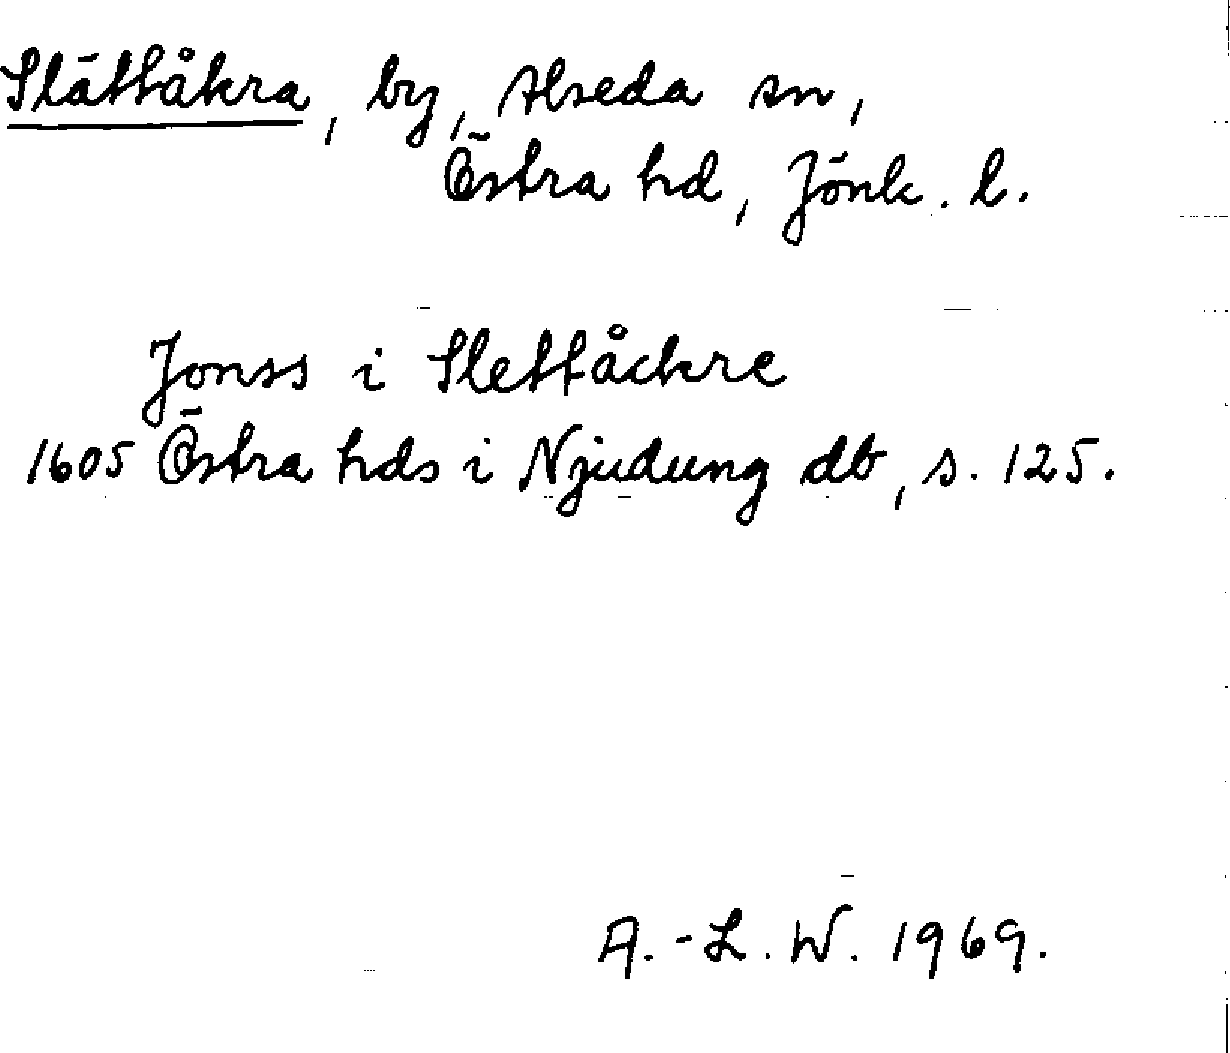 Slättåkra, by, Alseda sn,
Östra hd, Jönk. l.
Jonss i Slettåckre
1605 Östra hds i Njudung db, s. 125.
A.-L. W. 1969.